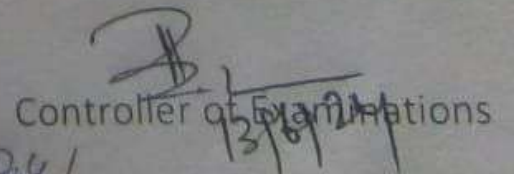 Controller of Examinations
13/6/24